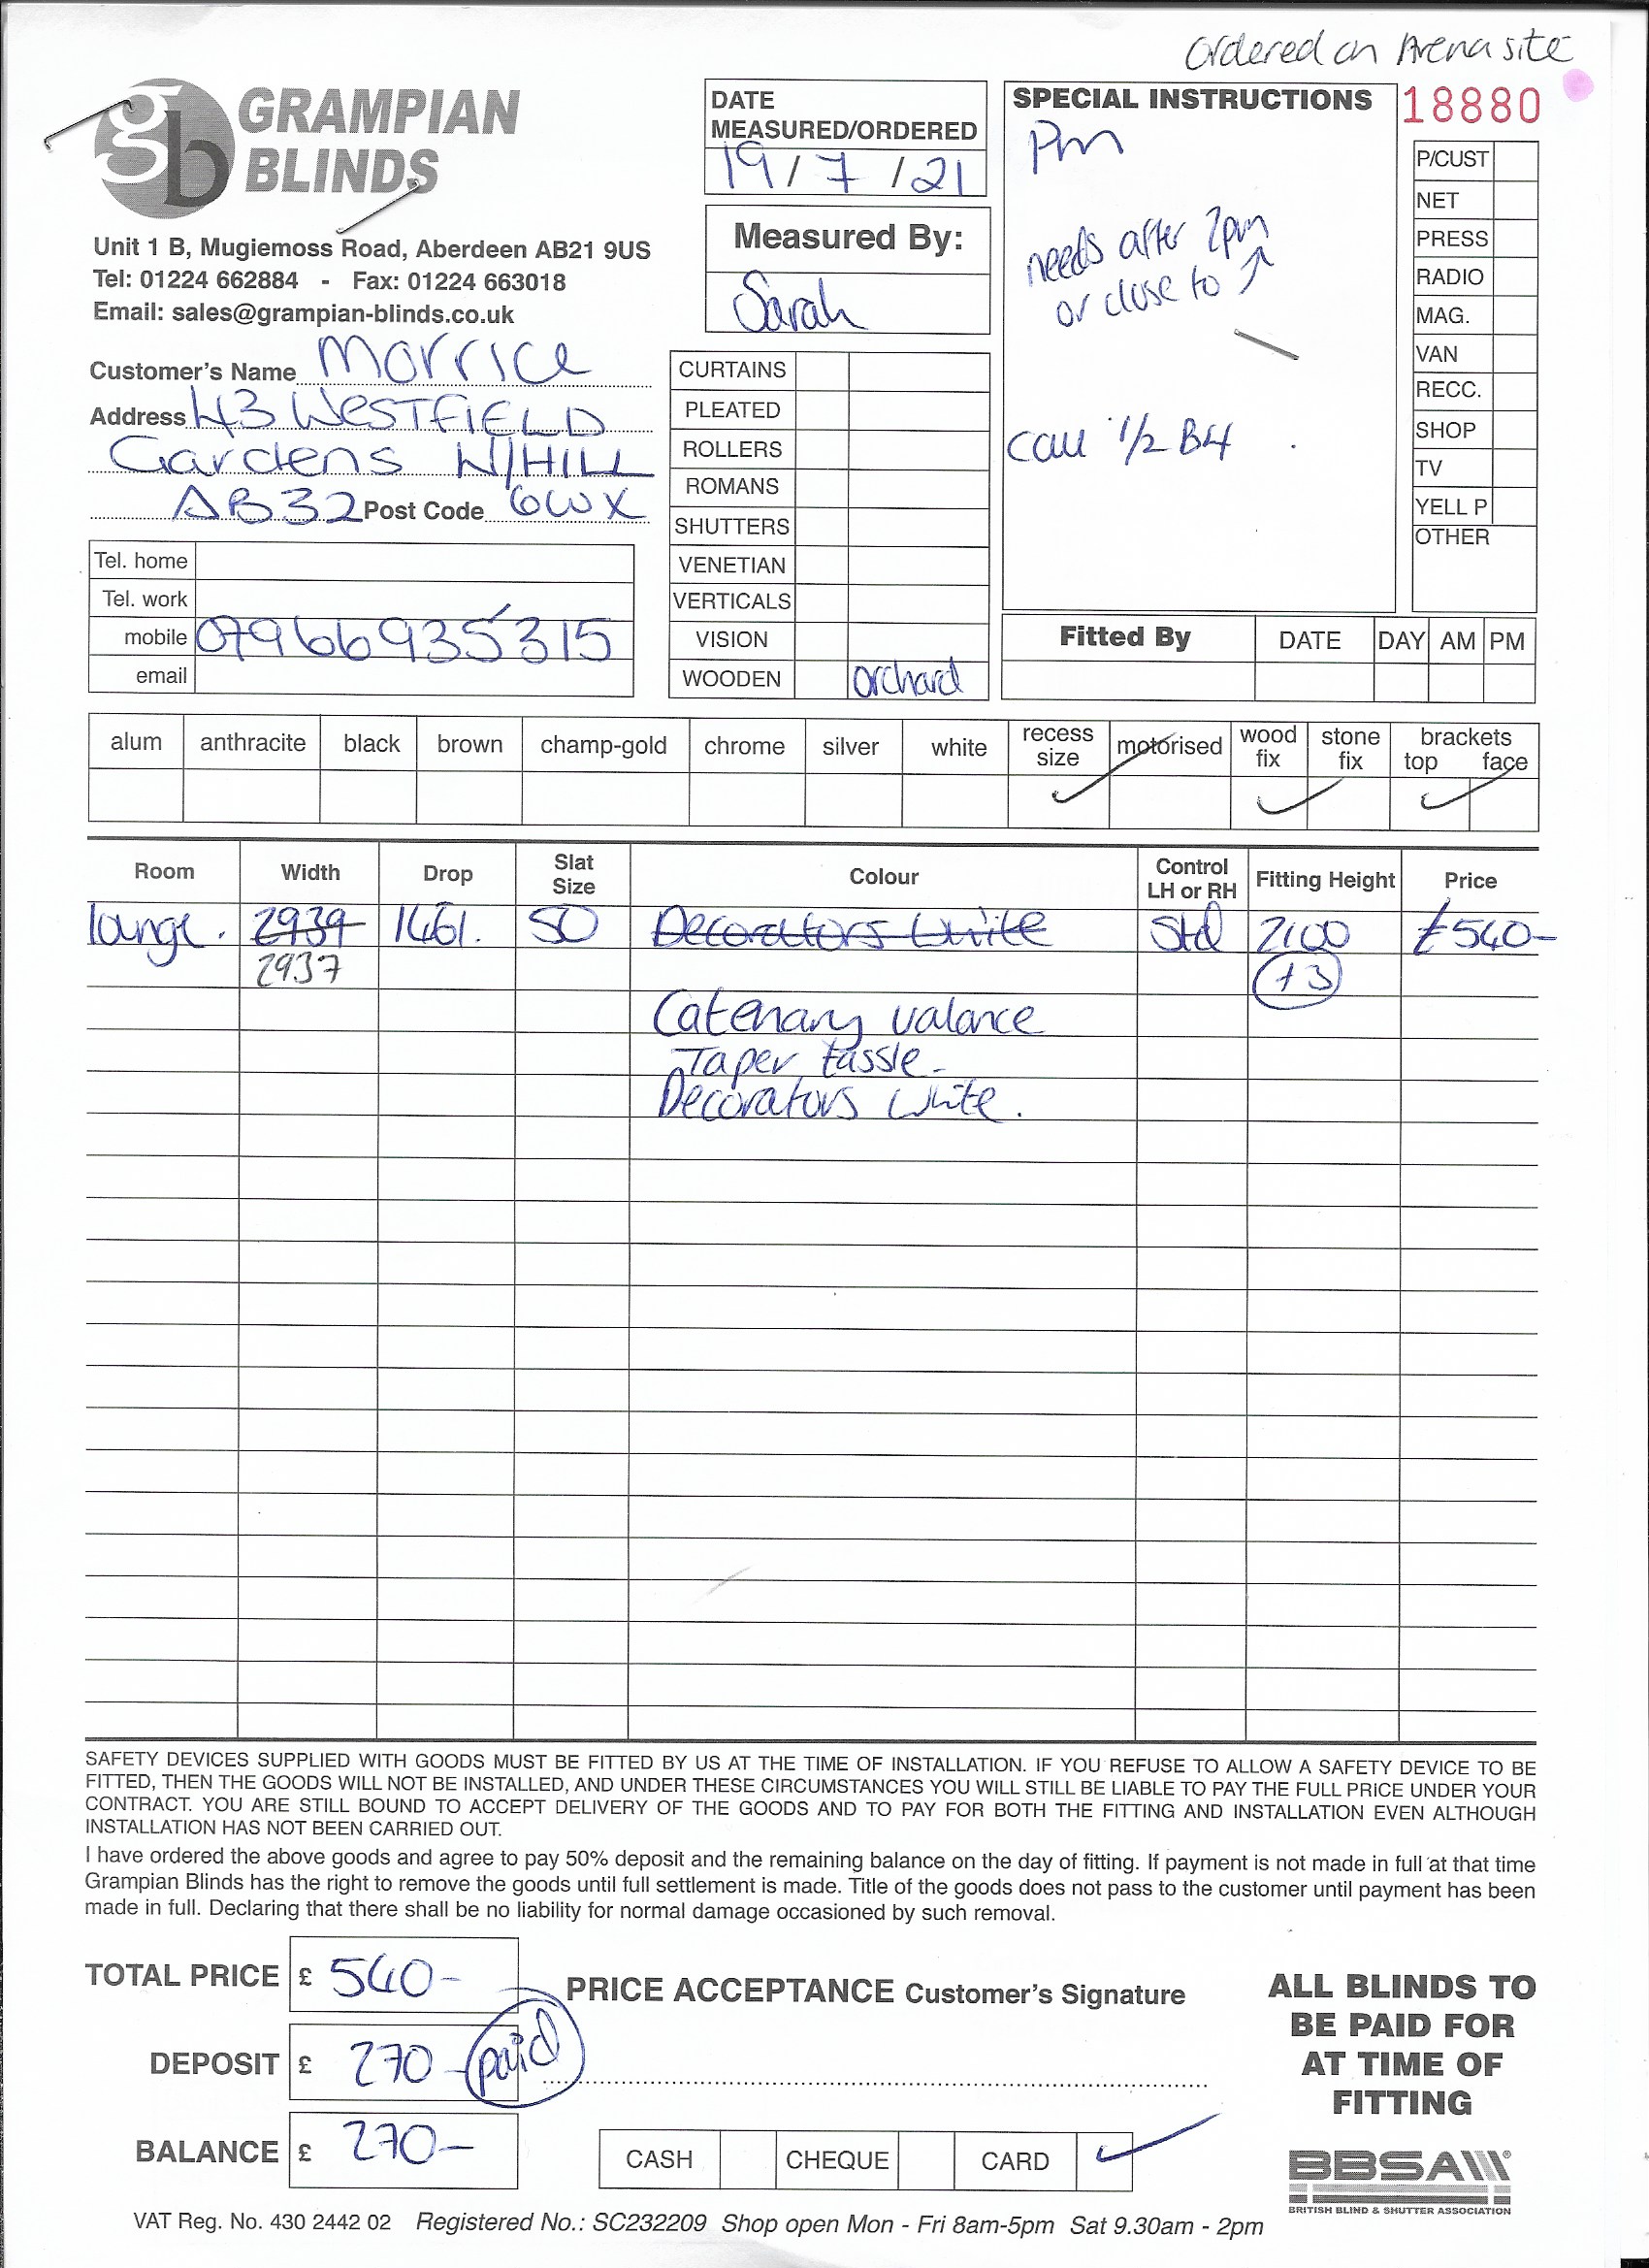 Ordered on Arena site
gb GRAMPIAN
BLINDS
Unit 1 B, Mugiemoss Road, Aberdeen AB21 9US
Tel: 01224 662884 - Fax: 01224 663018
Email: sales@grampian-blinds.co.uk
Customer's Name Morrice
Address 43 WESTFIELD
Gardens W/HILL
AB32 Post Code 6WX
Tel. home
Tel. work
mobile 07966935315
email
DATE
MEASURED/ORDERED
19/7/21
Measured By:
Sarah
CURTAINS
PLEATED
ROLLERS
ROMANS
SHUTTERS
VENETIAN
VERTICALS
VISION
WOODEN Orchard
SPECIAL INSTRUCTIONS
Pm
needs after 2pm
or close to
Call 1/2 B4
18880
P/CUST
NET
PRESS
RADIO
MAG.
VAN
RECC.
SHOP
TV
YELL P
OTHER
Fitted By DATE DAY AM PM
alum anthracite black brown champ-gold chrome silver white recess size motorised wood fix stone fix brackets top face
Room Width Drop Slat Size Colour Control LH or RH Fitting Height Price
lounge. 2939 1461. 50 Decorators White Std 2100 £540-
2937 +3
Catenary valance
Taper tassle-
Decorators White.
SAFETY DEVICES SUPPLIED WITH GOODS MUST BE FITTED BY US AT THE TIME OF INSTALLATION. IF YOU REFUSE TO ALLOW A SAFETY DEVICE TO BE
FITTED, THEN THE GOODS WILL NOT BE INSTALLED, AND UNDER THESE CIRCUMSTANCES YOU WILL STILL BE LIABLE TO PAY THE FULL PRICE UNDER YOUR
CONTRACT. YOU ARE STILL BOUND TO ACCEPT DELIVERY OF THE GOODS AND TO PAY FOR BOTH THE FITTING AND INSTALLATION EVEN ALTHOUGH
INSTALLATION HAS NOT BEEN CARRIED OUT.
I have ordered the above goods and agree to pay 50% deposit and the remaining balance on the day of fitting. If payment is not made in full at that time
Grampian Blinds has the right to remove the goods until full settlement is made. Title of the goods does not pass to the customer until payment has been
made in full. Declaring that there shall be no liability for normal damage occasioned by such removal.
TOTAL PRICE £ 540-
DEPOSIT £ 270- paid
BALANCE £ 270-
PRICE ACCEPTANCE Customer's Signature
CASH CHEQUE CARD
ALL BLINDS TO
BE PAID FOR
AT TIME OF
FITTING
BBSA
BRITISH BLIND & SHUTTER ASSOCIATION
VAT Reg. No. 430 2442 02 Registered No.: SC232209 Shop open Mon - Fri 8am-5pm Sat 9.30am - 2pm